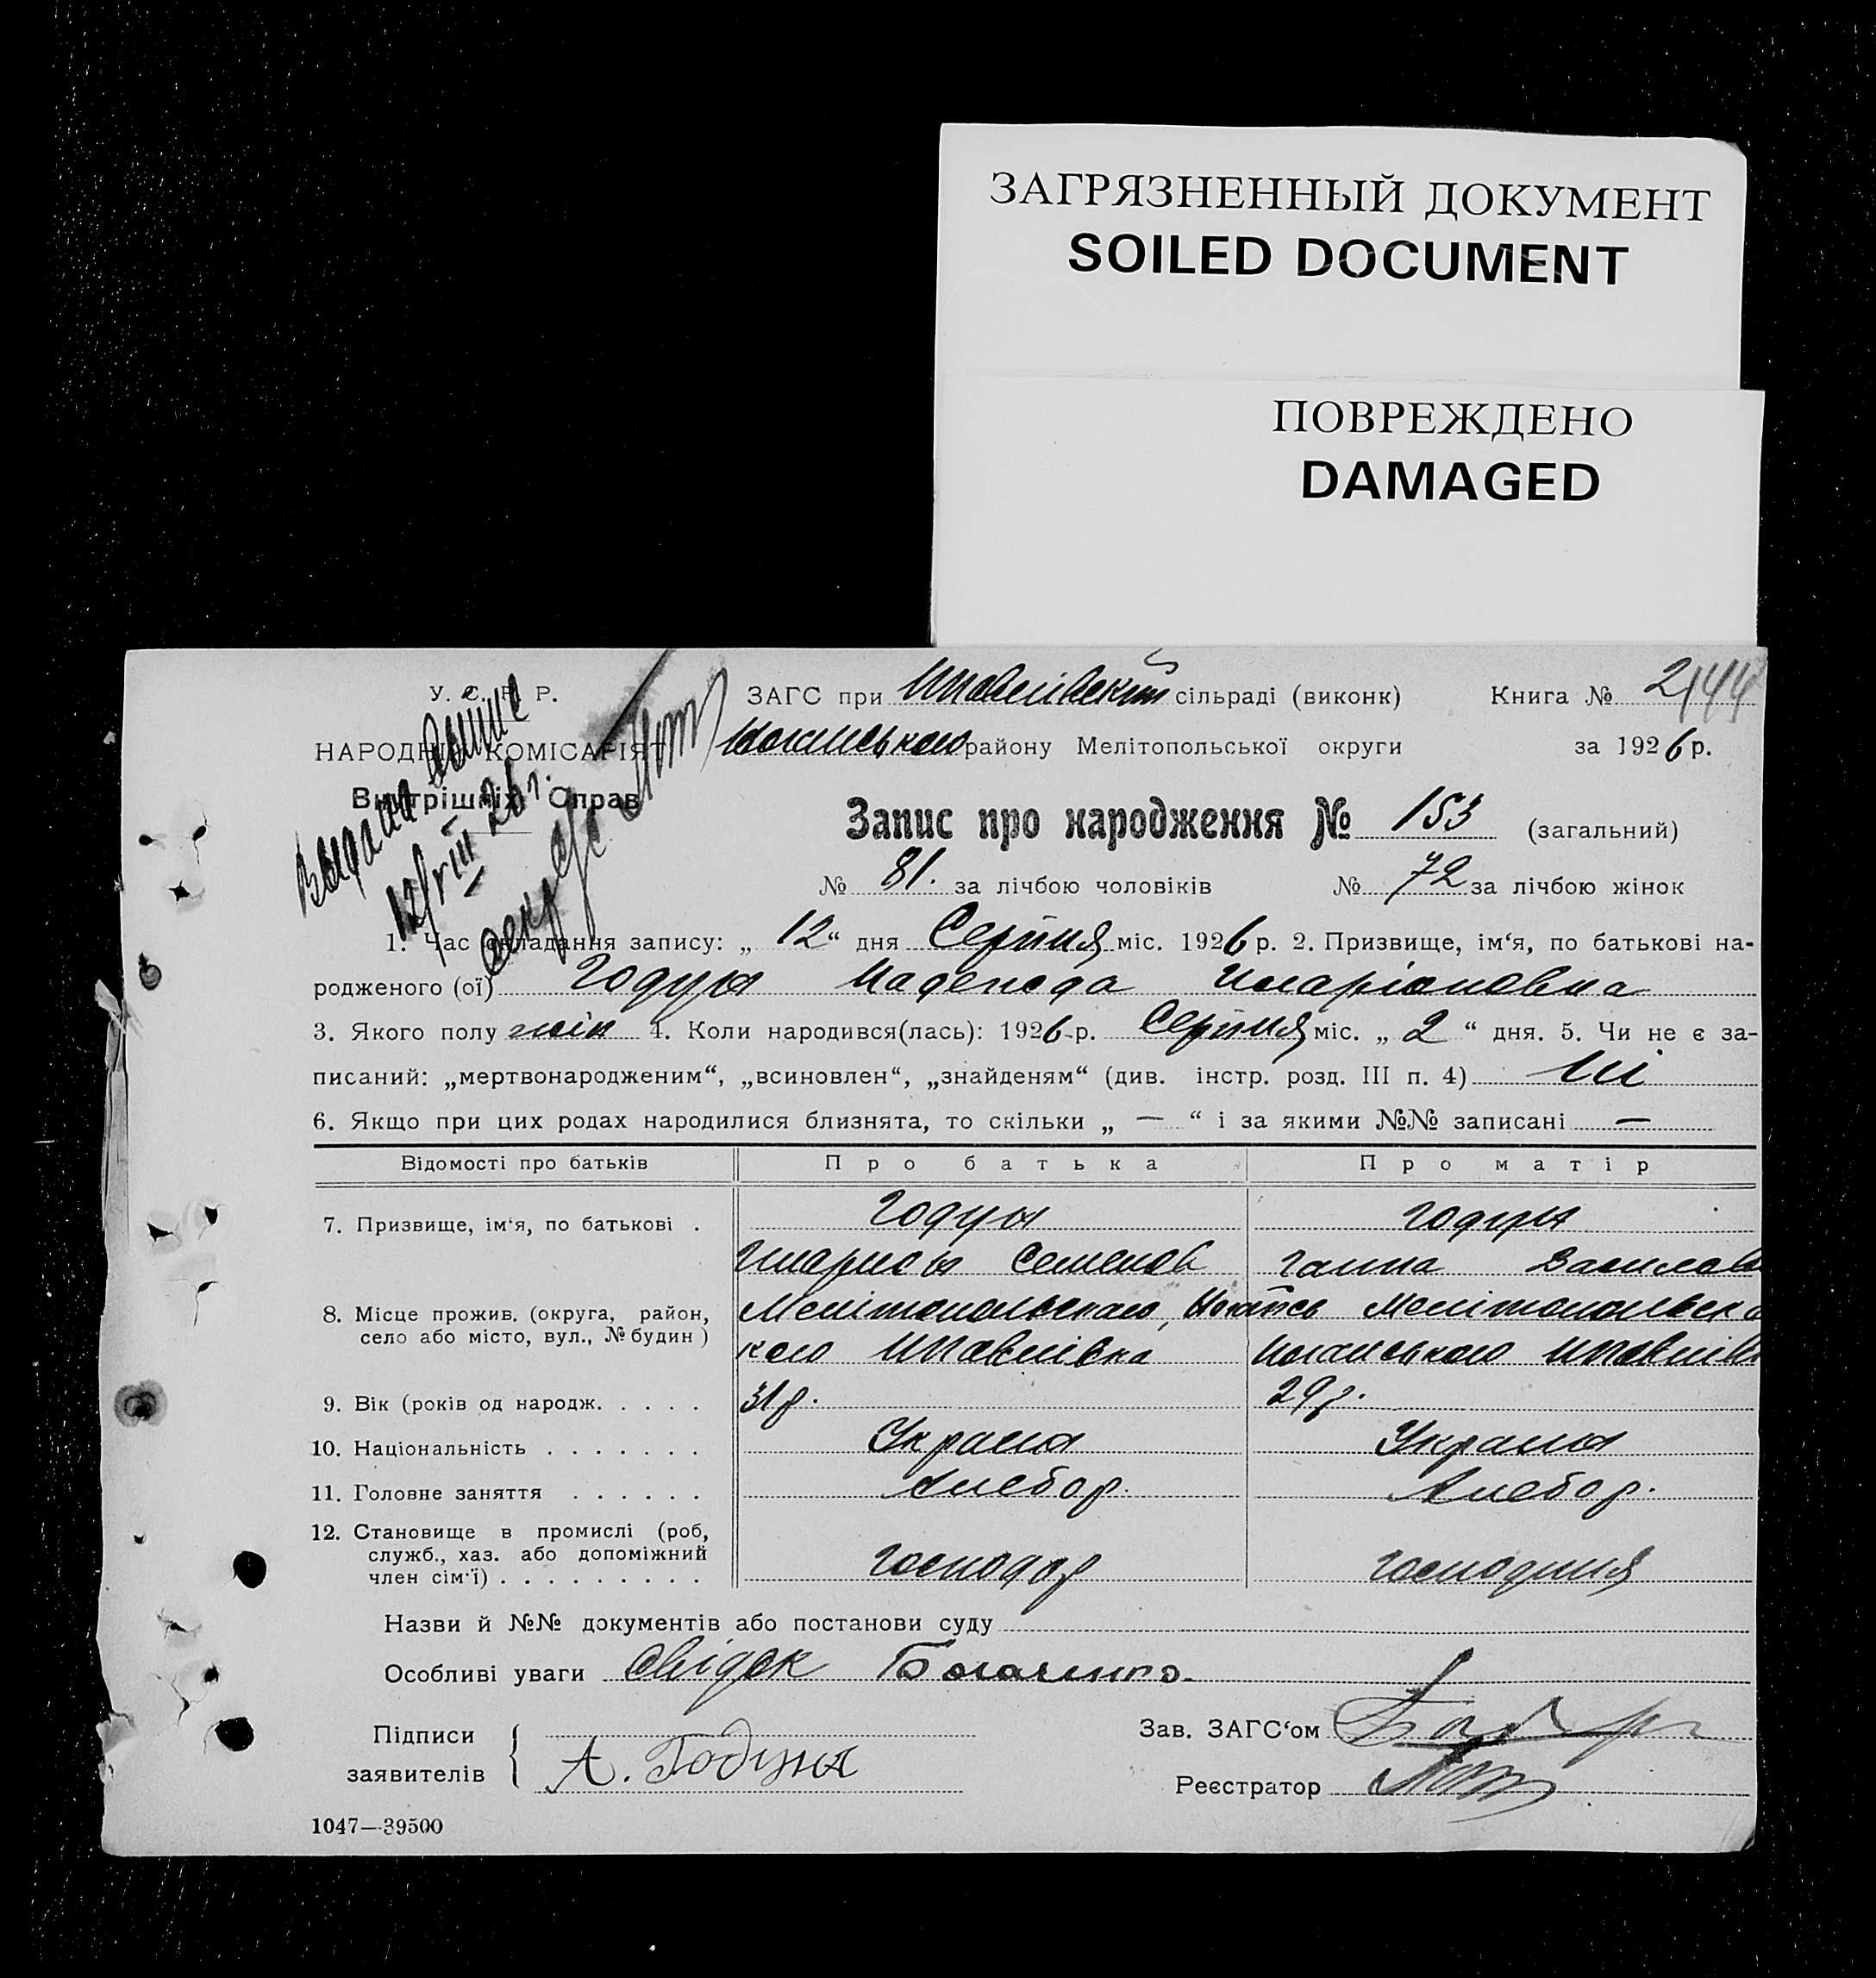 ЗАГРЯЗНЕННЫЙ ДОКУМЕНТ
SOILED DOCUMENT
ПОВРЕЖДЕНО
DAMAGED
У. С. Р. Р.
НАРОДНІЙ КОМІСАРІЯТ
Внутрішніх Справ
12/VIII 26 г.
ЗАГС при сільраді (виконк) Книга № 2
району Мелітопольської округи за 1926 р.
Запис про народження № 153 (загальний)
№ 81. за лічбою чоловіків № 72 за лічбою жінок
1. Час складання запису: „ 12 “ дня Серпня міс. 1926 р. 2. Призвище, ім‘я, по батькові на-
родженого (ої) Годун Надежда Иларіоновна
3. Якого полу жін 4. Коли народився(лась): 1926 р. Серпня міс. „ 2 “ дня. 5. Чи не є за-
писаний: „мертвонародженим“, „всиновлен“, „знайденям“ (див. інстр. розд. III п. 4) Ні
6. Якщо при цих родах народилися близнята, то скільки „ — “ і за якими №№ записані —
Відомості про батьків Про батька Про матір
7. Призвище, ім‘я, по батькові . Годун Годун
Иларион Семенов Ганна Василов
8. Місце прожив. (округа, район, Мелітопольського, Мелітопольско
село або місто, вул., № будин)
9. Вік (років од народж. . . . . 31 р. 29 р.
10. Національність . . . . . . . Украин Украин
11. Головне заняття . . . . . . Хлебор. Хлебор.
12. Становище в промислі (роб,
служб., хаз. або допоміжний
член сім‘ї) . . . . . . . . . Господар Господиня
Назви й №№ документів або постанови суду
Особливі уваги свідок
Підписи Зав. ЗАГС‘ом
заявителів А. Годун
Реєстратор
1047—39500